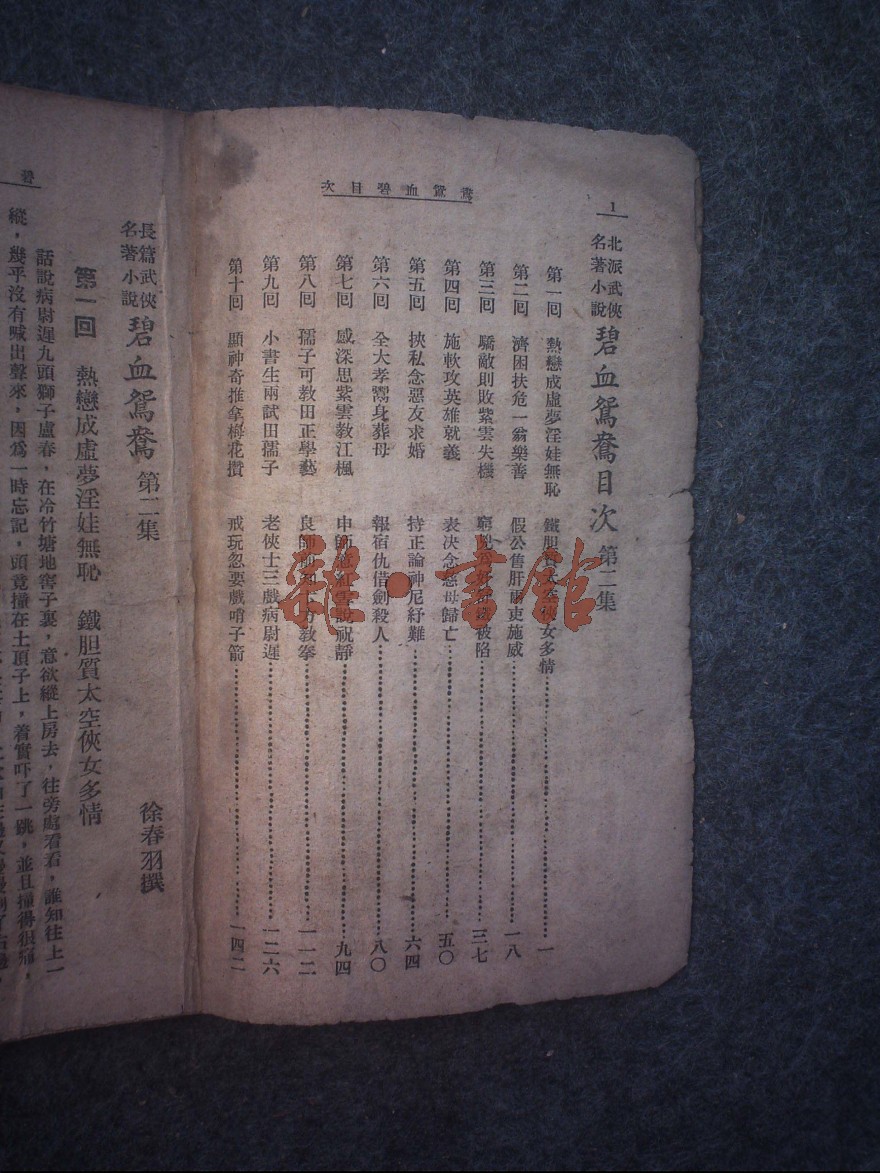 鴦鴛血碧目次
1
北派武俠名著小說 碧血鴛鴦目次 第二集
第一回 熱戀成虛夢淫娃無恥 鐵胆質太空俠女多情 一
第二回 濟困扶危一翁樂善 假公售肝吏施威 一八
第三回 驕敵則敗紫雲失機 被陷 三七
第四回 施軟攻英雄就義 表决念慈母歸亡 五〇
第五回 挾私念惡友求婚 持正論神尼紓難 六四
第六回 全大孝鬻身葬母 報宿仇借劍殺人 八〇
第七回 感深思紫雲教江楓 申師 紅雲說祝靜 九四
第八回 孺子可教田正學藝 良師 方教拳 一一二
第九回 小書生兩試田孺子 老俠士三戲病尉遲 一二六
第十回 顯神奇推拿梅花攢 戒玩忽要戲哨子箭 一四二
雜·書館
碧
長篇武俠名著小說 碧血鴛鴦 第二集 徐春羽撰
第一回 熱戀成虛夢淫娃無恥 鐵胆質太空俠女多情
話說病尉遲九頭獅子盧春，在冷竹塘地窖子裏，意欲縱上房去，往旁處看看，誰知往上一
縱，幾乎沒有喊出聲來，因爲一時忘記，頭竟撞在土頂子上，着實吓了一跳，並且撞得很痛，